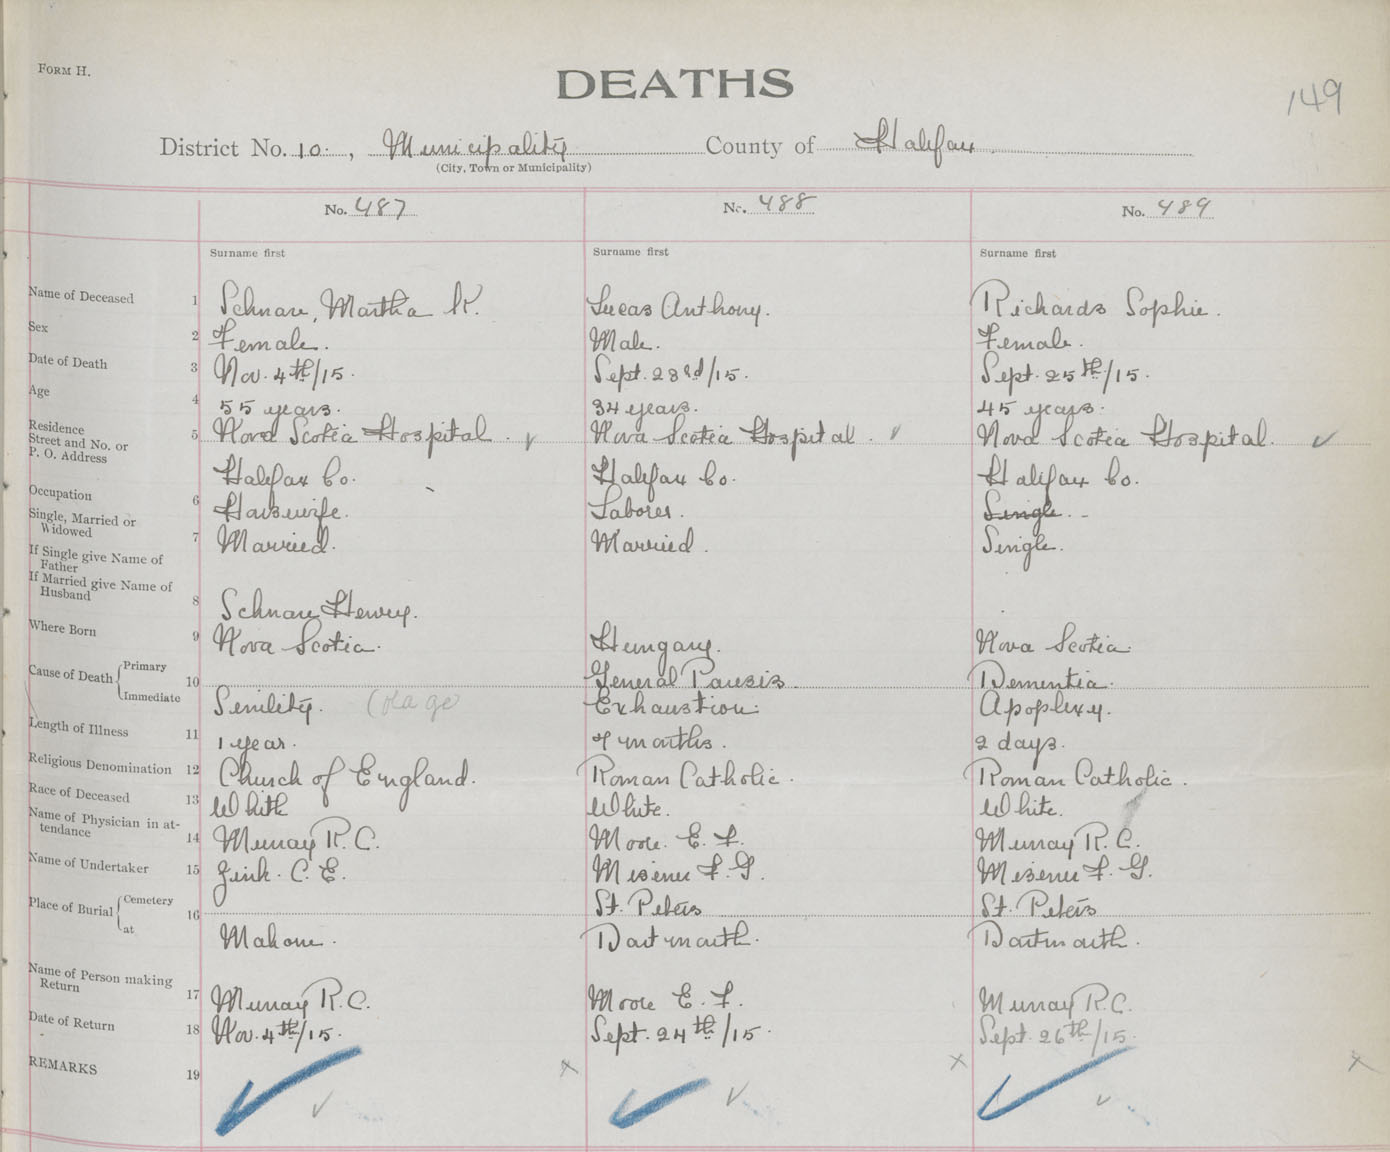 FORM H.
DEATHS
149
District No. 10, Municipality County of Halifax
(City, Town or Municipality)
No. 487 No. 488 No. 489
Surname first Surname first Surname first
Name of Deceased 1 Schnare, Martha K. Lucas Anthony. Richards Sophie.
Sex 2 Female. Male. Female.
Date of Death 3 Nov. 4th/15. Sept. 23rd/15. Sept. 25th/15.
Age 4 55 years. 34 years. 45 years.
Residence Street and No. or P. O. Address 5 Nova Scotia Hospital. Nova Scotia Hospital. Nova Scotia Hospital.
Halifax Co. Halifax Co. Halifax Co.
Occupation 6 Housewife. Laborer. Single.
Single, Married or Widowed 7 Married. Married. Single.
If Single give Name of Father
If Married give Name of Husband 8 Schnare Henry.
Where Born 9 Nova Scotia. Hungary. Nova Scotia.
Cause of Death Primary 10 General Paresis Dementia.
Immediate Senility. (old age Exhaustion. Apoplexy.
Length of Illness 11 1 year. 7 months. 2 days.
Religious Denomination 12 Church of England. Roman Catholic. Roman Catholic.
Race of Deceased 13 White White. White.
Name of Physician in attendance 14 Murray R.C. Moore E. F. Murray R. C.
Name of Undertaker 15 Zink. C. E. Misener F. G. Misener F. G.
Place of Burial Cemetery 16 St. Peters St. Peters
at Mahone. Dartmouth. Dartmouth.
Name of Person making Return 17 Murray R.C. Moore E. F. Murray R.C.
Date of Return 18 Nov. 4th/15. Sept. 24th/15. Sept. 26th/15.
REMARKS 19